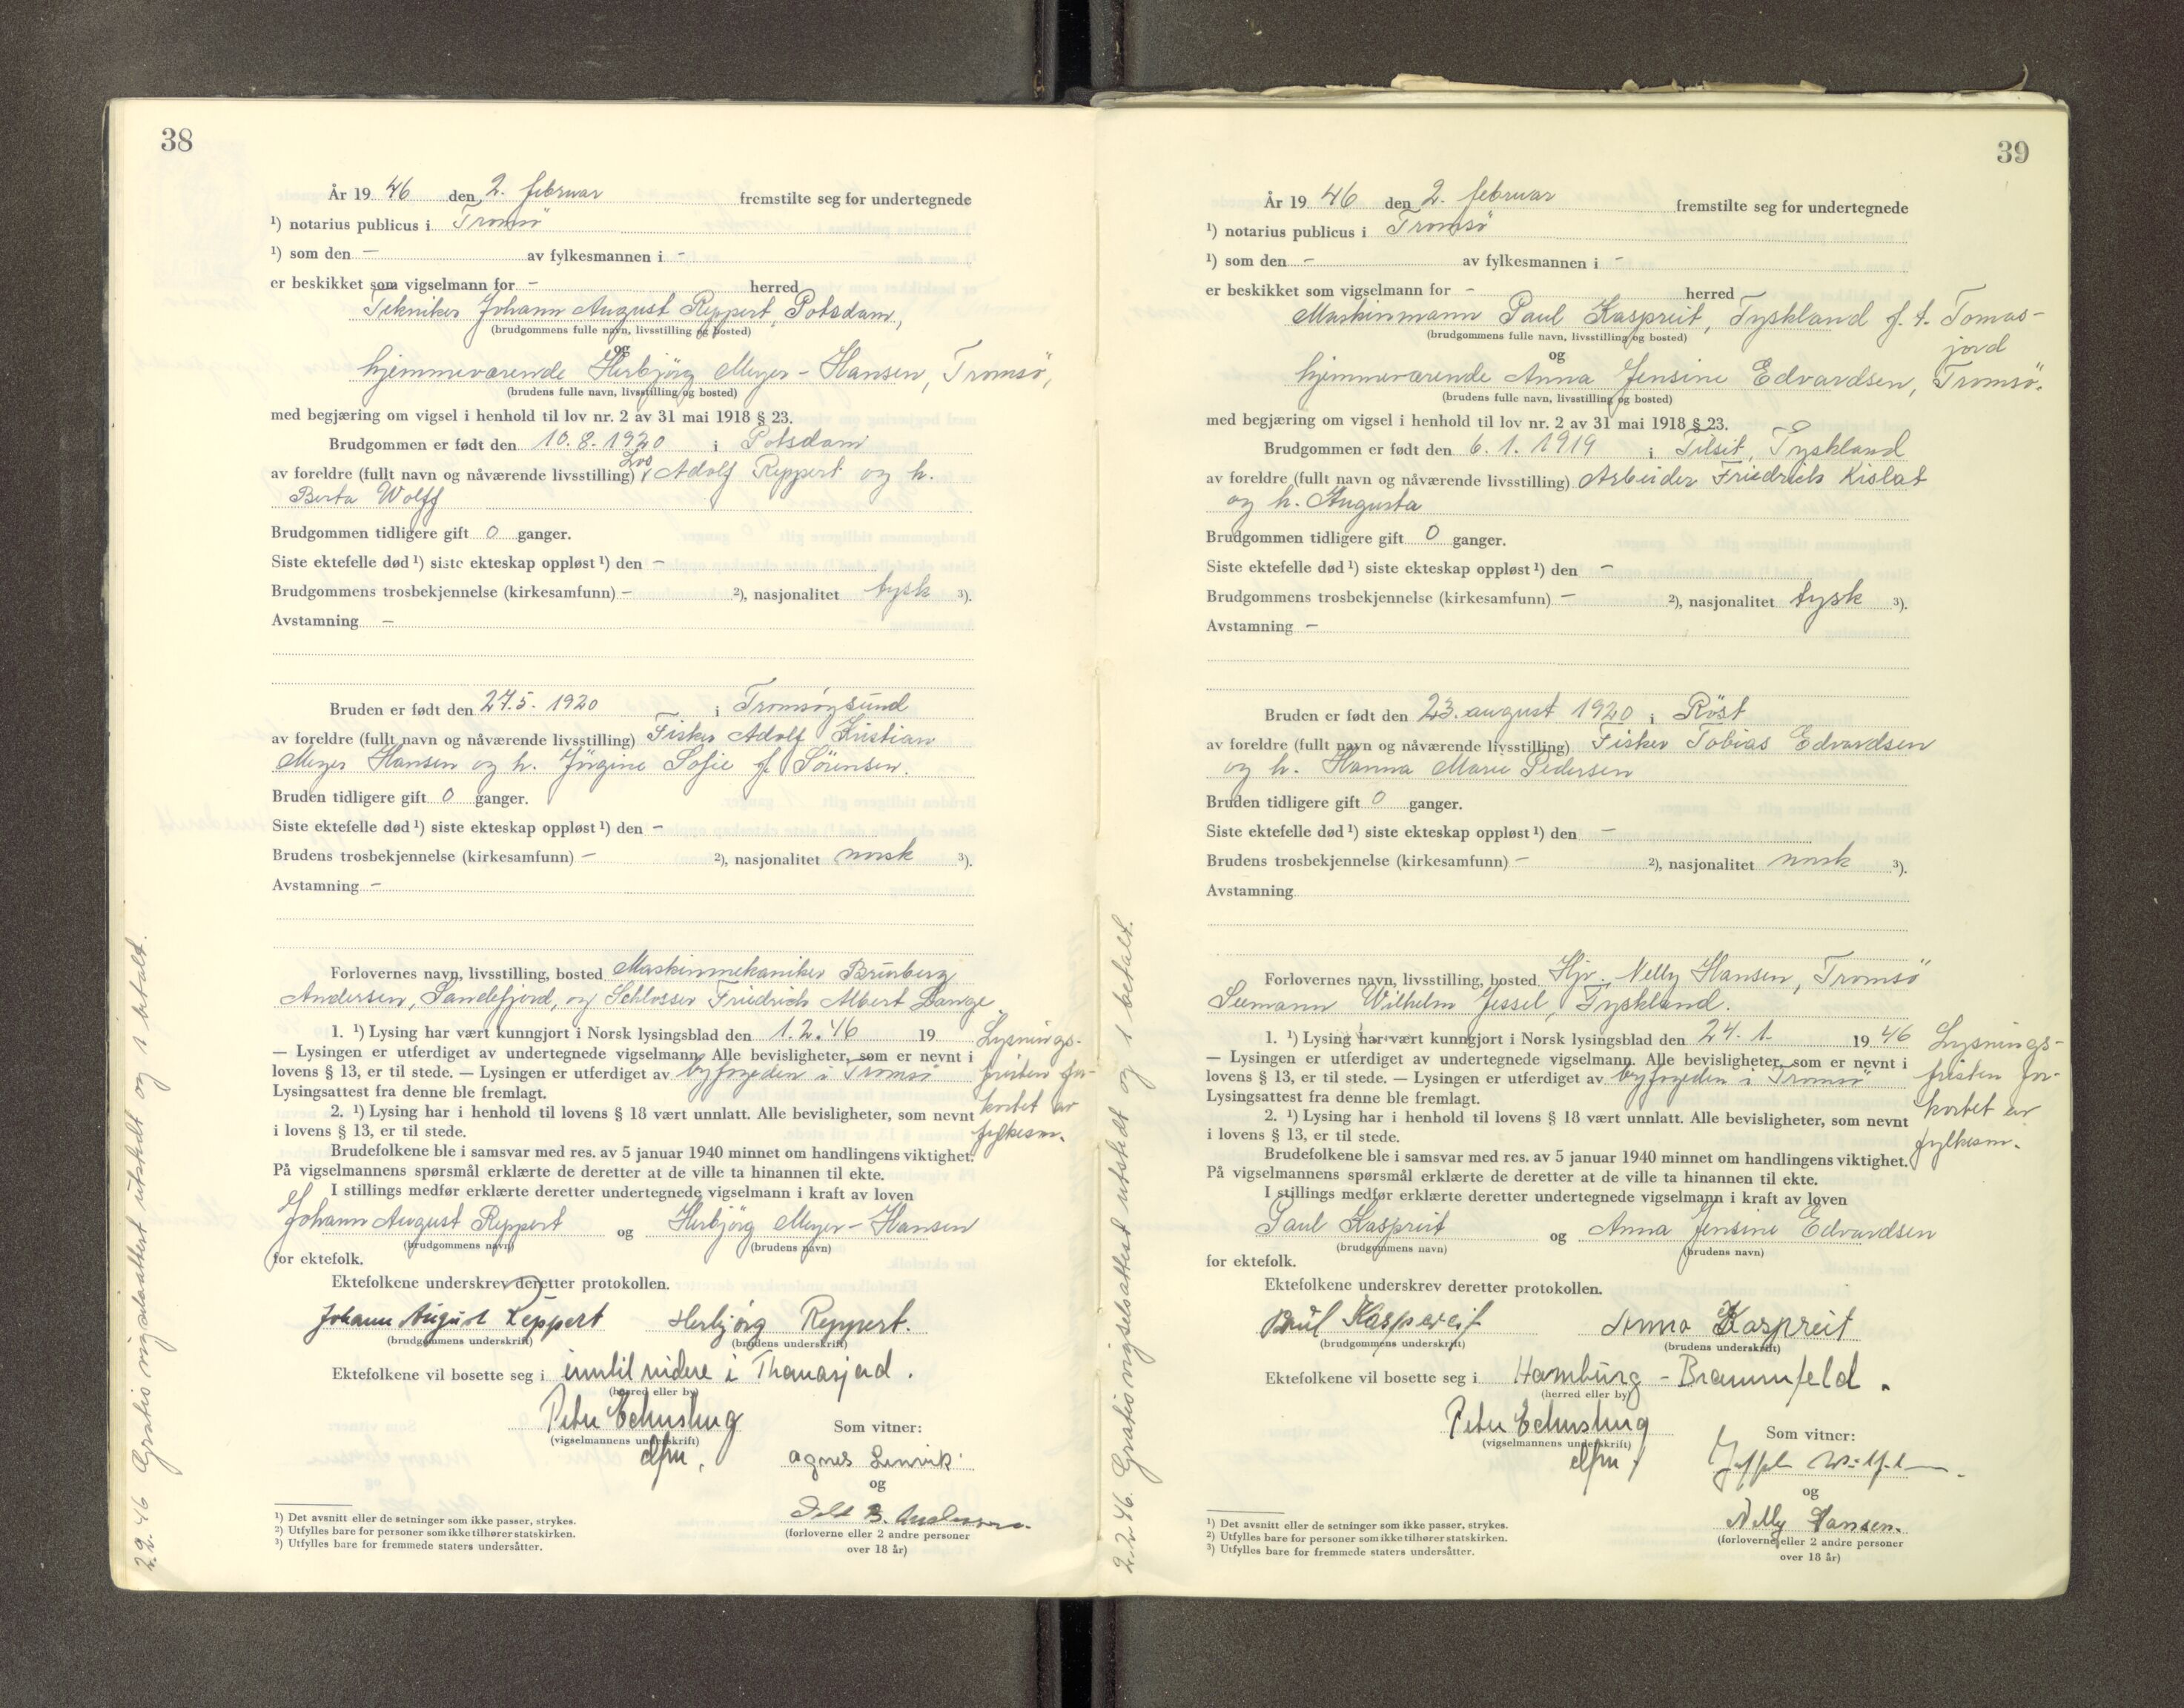 38
År 19 46 den 2. februar fremstilte seg for undertegnede
¹) notarius publicus i Tromsö
¹) som den – av fylkesmannen i –
er beskikket som vigselmann for – herred
Tekniker Johann August Reppert, Potsdam,
(brudgommens fulle navn, livsstilling og bosted)
og
hjemmeværende Herbjörg Meyer-Hansen, Tromsö,
(brudens fulle navn, livsstilling og bosted)
med begjæring om vigsel i henhold til lov nr. 2 av 31 mai 1918 § 23.
Brudgommen er født den 10.8.1920 i Potsdam
av foreldre (fullt navn og nåværende livsstilling) Adolf Reppert og h.
Berta Wolff
Brudgommen tidligere gift 0 ganger.
Siste ektefelle død ¹) siste ekteskap oppløst ¹) den –
Brudgommens trosbekjennelse (kirkesamfunn) – ²), nasjonalitet tysk ³).
Avstamning –
Bruden er født den 27.5.1920 i Tromsöysund
av foreldre (fullt navn og nåværende livsstilling) Fisker Adolf Kristian
Meyer Hansen og h. Jörgine Sofie f. Sörensen.
Bruden tidligere gift 0 ganger.
Siste ektefelle død ¹) siste ekteskap oppløst ¹) den –
Brudens trosbekjennelse (kirkesamfunn) – ²), nasjonalitet norsk ³).
Avstamning –
Forlovernes navn, livsstilling, bosted Maskinmekaniker Brünberg
Andersen, Sandefjord, og Schlosser Friedrich Albert Lange
1. ¹) Lysing har vært kunngjort i Norsk lysingsblad den 1.2.46 19
— Lysingen er utferdiget av undertegnede vigselmann. Alle bevisligheter, som er nevnt i
lovens § 13, er til stede. — Lysingen er utferdiget av byfogden i Tromsö
Lysingsattest fra denne ble fremlagt.
2. ¹) Lysing har i henhold til lovens § 18 vært unnlatt. Alle bevisligheter, som nevnt
i lovens § 13, er til stede.
Lysnings-
fristen for-
kortet av
fylkesm.
Brudefolkene ble i samsvar med res. av 5 januar 1940 minnet om handlingens viktighet.
På vigselmannens spørsmål erklærte de deretter at de ville ta hinannen til ekte.
I stillings medfør erklærte deretter undertegnede vigselmann i kraft av loven
Johann August Reppert og Herbjörg Meyer-Hansen
(brudgommens navn) (brudens navn)
for ektefolk.
Ektefolkene underskrev deretter protokollen.
Johann August Reppert Herbjørg Reppert.
(brudgommens underskrift) (brudens underskrift)
Ektefolkene vil bosette seg i inntil videre i Thomasjord.
(herred eller by)
(vigselmannens underskrift)
Som vitner:
Agnes Lenvik
og
(forloverne eller 2 andre personer
over 18 år)
¹) Det avsnitt eller de setninger som ikke passer, strykes.
²) Utfylles bare for personer som ikke tilhører statskirken.
³) Utfylles bare for fremmede staters undersåtter.
2.2.46 Gratis vigselsattest utstedt og 1 betalt.
39
År 19 46 den 2. februar fremstilte seg for undertegnede
¹) notarius publicus i Tromsö
¹) som den – av fylkesmannen i –
er beskikket som vigselmann for – herred
Maskinmann Paul Kaspreit, Tyskland f. t. Tomas-
jord
(brudgommens fulle navn, livsstilling og bosted)
og
hjemmeværende Anna Jensine Edvardsen, Tromsö.
(brudens fulle navn, livsstilling og bosted)
med begjæring om vigsel i henhold til lov nr. 2 av 31 mai 1918 § 23.
Brudgommen er født den 6.1.1919 i Tilsit, Tyskland
av foreldre (fullt navn og nåværende livsstilling) Arbeider Friedrich Kislat
og h. Augusta
Brudgommen tidligere gift 0 ganger.
Siste ektefelle død ¹) siste ekteskap oppløst ¹) den –
Brudgommens trosbekjennelse (kirkesamfunn) – ²), nasjonalitet tysk ³).
Avstamning –
Bruden er født den 23. august 1920 i Röst
av foreldre (fullt navn og nåværende livsstilling) Fisker Tobias Edvardsen
og h. Hanna Marie Pedersen
Bruden tidligere gift 0 ganger.
Siste ektefelle død ¹) siste ekteskap oppløst ¹) den –
Brudens trosbekjennelse (kirkesamfunn) – ²), nasjonalitet norsk ³).
Avstamning
Forlovernes navn, livsstilling, bosted Hjv. Nelly Hansen, Tromsö
Seemann Wilhelm Jessel, Tyskland.
1. ¹) Lysing har vært kunngjort i Norsk lysingsblad den 24. 1. 19 46
— Lysingen er utferdiget av undertegnede vigselmann. Alle bevisligheter, som er nevnt i
lovens § 13, er til stede. — Lysingen er utferdiget av byfogden i Tromsö
Lysingsattest fra denne ble fremlagt.
2. ¹) Lysing har i henhold til lovens § 18 vært unnlatt. Alle bevisligheter, som nevnt
i lovens § 13, er til stede.
Lysnings-
fristen for-
kortet av
fylkesm.
Brudefolkene ble i samsvar med res. av 5 januar 1940 minnet om handlingens viktighet.
På vigselmannens spørsmål erklærte de deretter at de ville ta hinannen til ekte.
I stillings medfør erklærte deretter undertegnede vigselmann i kraft av loven
Paul Kaspreit og Anna Jensine Edvardsen
(brudgommens navn) (brudens navn)
for ektefolk.
Ektefolkene underskrev deretter protokollen.
Paul Kaspereit Anna Kaspreit
(brudgommens underskrift) (brudens underskrift)
Ektefolkene vil bosette seg i Hamburg - Bramfeld.
(herred eller by)
(vigselmannens underskrift)
Som vitner:
og
Nelly Hansen.
(forloverne eller 2 andre personer
over 18 år)
¹) Det avsnitt eller de setninger som ikke passer, strykes.
²) Utfylles bare for personer som ikke tilhører statskirken.
³) Utfylles bare for fremmede staters undersåtter.
2.2.46. Gratis vigselsattest utstedt og 1 betalt.